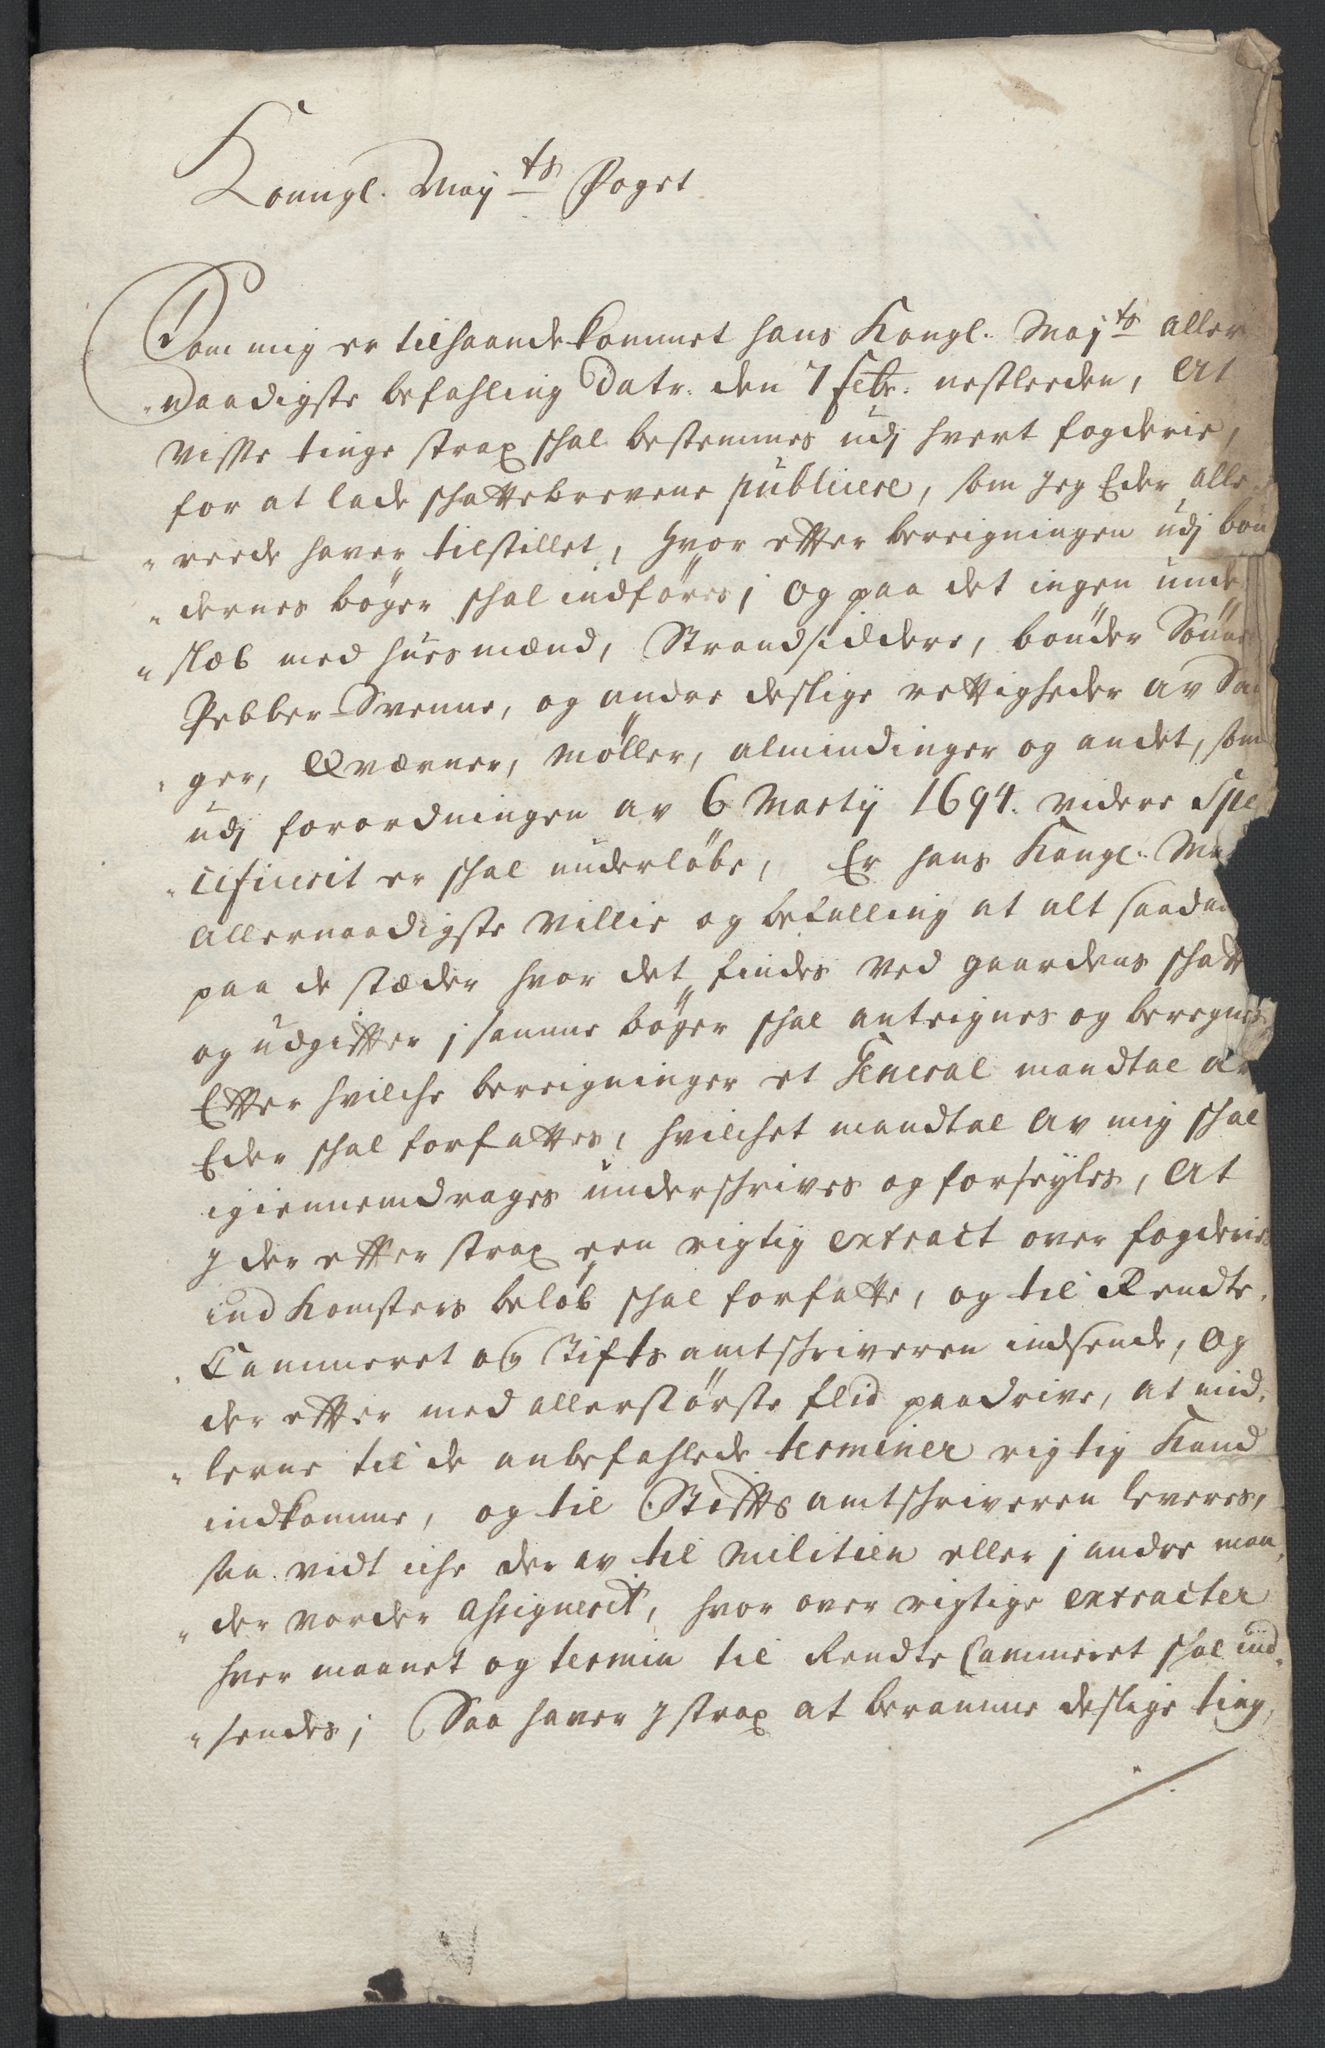 Konngl. May:ts Foget
Som mig er tilhaandekommet hans Kongl. May:ts aller
naadigste befahling Datr. den 7 febr. nestleeden, At
visse tinge strax schal bestemmes udj hvert fogderie,
for at lade schattebrevene publicere, som jeg Eder alle-
reede haver tilstillet, hvor efter bereigningen udj bøn
dernes bøger schal indføres; og paa det ingen under
slæb med huusmænd, Strandsiddere, bønder Sønner
Pebber-Svenne, og andre deslige rettigheder av Sau
ger, Qværner, Møller, almindinger og andet, som
udj forordningen av 6 Martij 1694. videre Spe
cificerit er schal underløbe, Er hans Kongl. May
Allernaadigste Villie og befalling at alt saadan
paa de stæder hvor det findes ved gaardens schatter
og udgifter j samme bøger schal anteignes og beregnes
Efter hvilche bereigninger et General mandtal av
Eder schal forfattes, hvilchet mandtal av mig schal
igiennemdrages underschrives og forseyles, At
J der efter strax een rigtig extract over fogderies
indkomsters beløb schal forfatte, og til Rendte
Cammeret og Stiftsamtschriveren indsende, Og
der efter med allerstørste flid paadrive, at mid-
lerne til de anbefahlede terminer rigtig kand
indkomme, og til Stiftsamtschriveren leveres,
saa vidt iche der av til Militien eller j andre maa-
der vorder Assignerit, hvor over rigtige extracter
hver maanet og termin til Rendte Cammeret schal ind-
sendes; Saa haver J strax at beramme deslige ting,